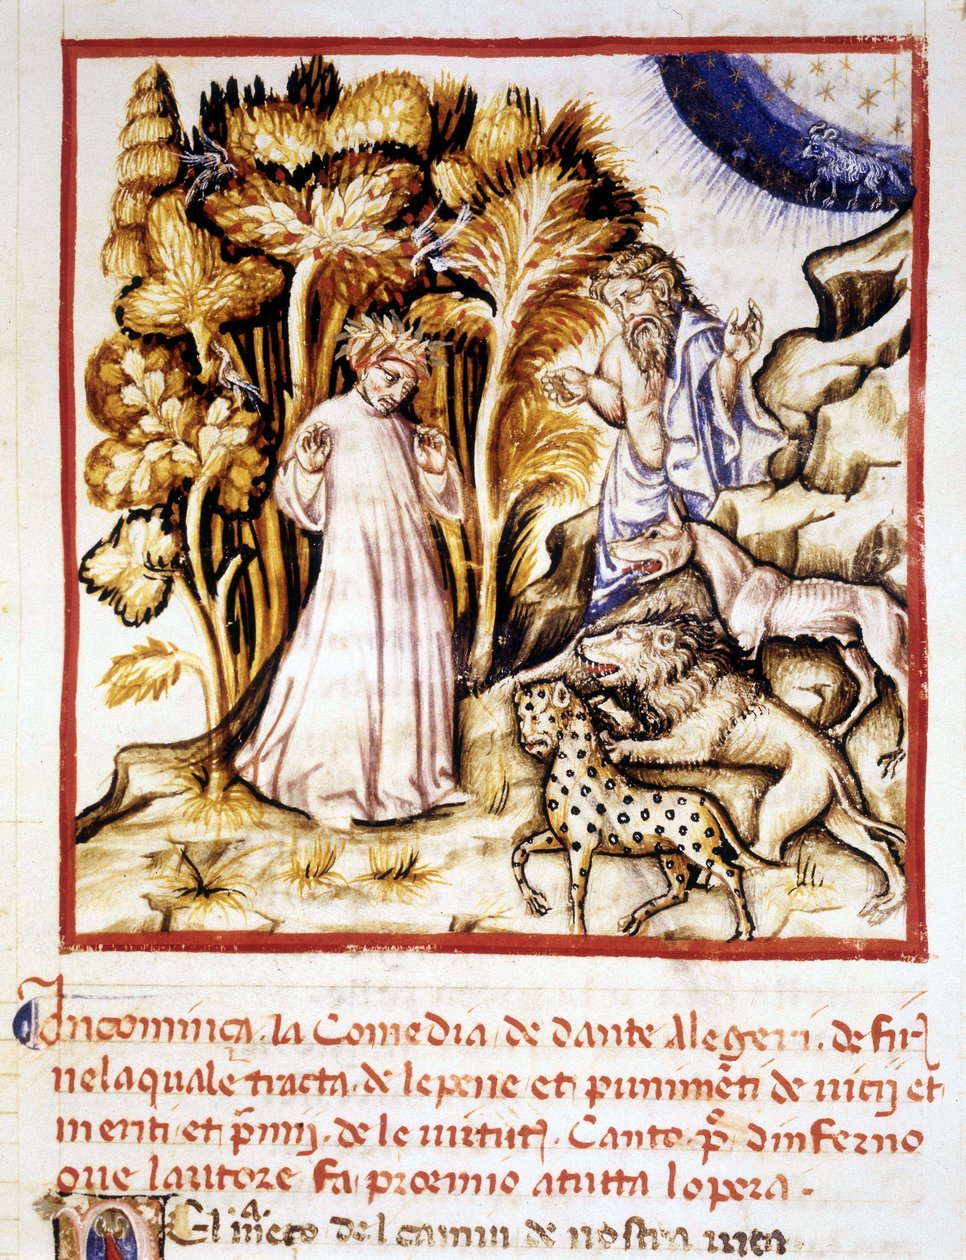 Incomínça. la Comedia. de dante Alegeri. de fir̃
nela quale tracta. de le pene et punimẽti de uicij et
meriti et p̃mij. de le uirtut̃. Canto. p̊. dinferno
oue lautore fa proemio a tutta lopera.
NEl meço del camin de nostra uita